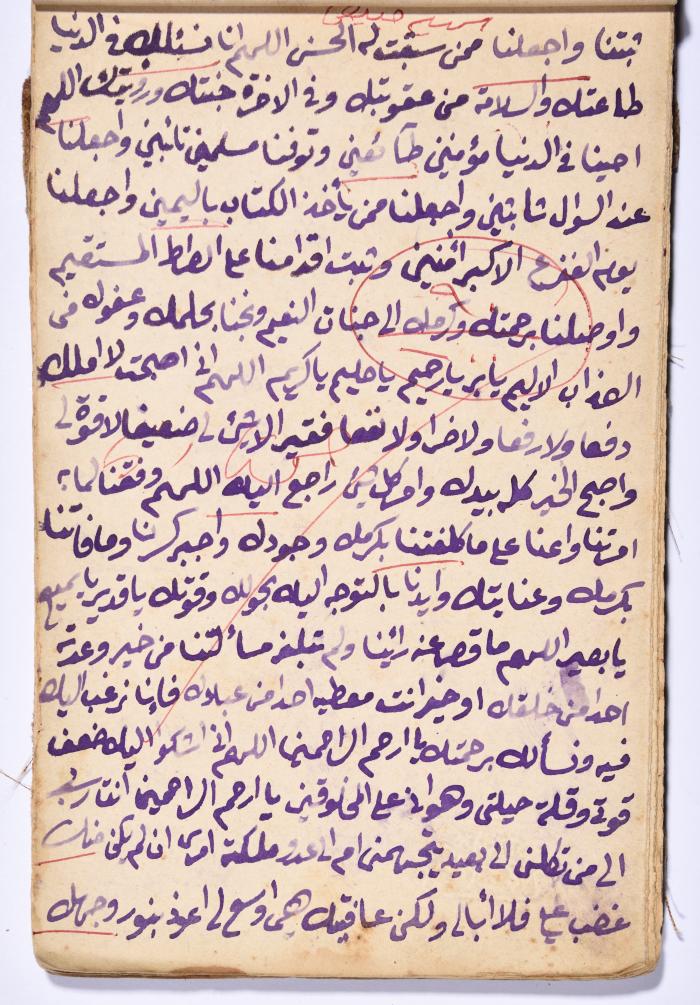 ثبتنا واجعلنا ممن سبقت له الحسنى اللهم انا نسئلك فى الدنيا
طاعتك والسلامة من عقوبتك وفى الاخرة جنتك ورؤيتك اللهم
احينا فى الدنيا مؤمنين طائعين وتوفنا مسلمين تائبين واجعلنا
عند السوال ثابتين واجعلنا ممن يأخذ الكتاب باليمين واجعلنا
يوم الفزع الاكبر آمنين وثبت اقدامنا على الصراط المستقيم
واوصلنا برحمتك وكرمك الى جنات النعيم ونجنا بحلمك وعفوك من
العذاب الاليم يا بر يا رحيم يا حليم يا كريم اللهم انى اصبحت لا املك
دفعا ولا رفعا ولا ضرا ولا نفعا فقير لا شئ لى ضعيف لا قوة لى
واصبح الخير كله بيدك وامر كل شئ راجع اليك اللهم وفقنا لما
امرتنا واعنا على ما كلفتنا بكرمك وجودك واجبر كسرنا وما فاتنا
بكرمك وعنايتك وايدنا بالتوجه اليك بحولك وقوتك يا قدير يا سميع
يا بصير اللهم ما قصر عنه رائينا ولم تبلغه مسألتنا من خير وعدته
احدا من خلقك او خير انت معطيه احدا من عبادك فإنا نرغب اليك
فيه ونسألك برحمتك يا ارحم الراحمين اللهم انى اشكو اليك ضعف
قوتى وقلة حيلتى وهوانى على المخلوقين يا ارحم الراحمين انت رب
الى من تكلنى الى بعيد يتجهمنى ام الى عدو ملكته امرى ان لم يكن منك
غضب على فلا أبالى ولكن عافيتك هى اوسع لى اعوذ بنور وجهك